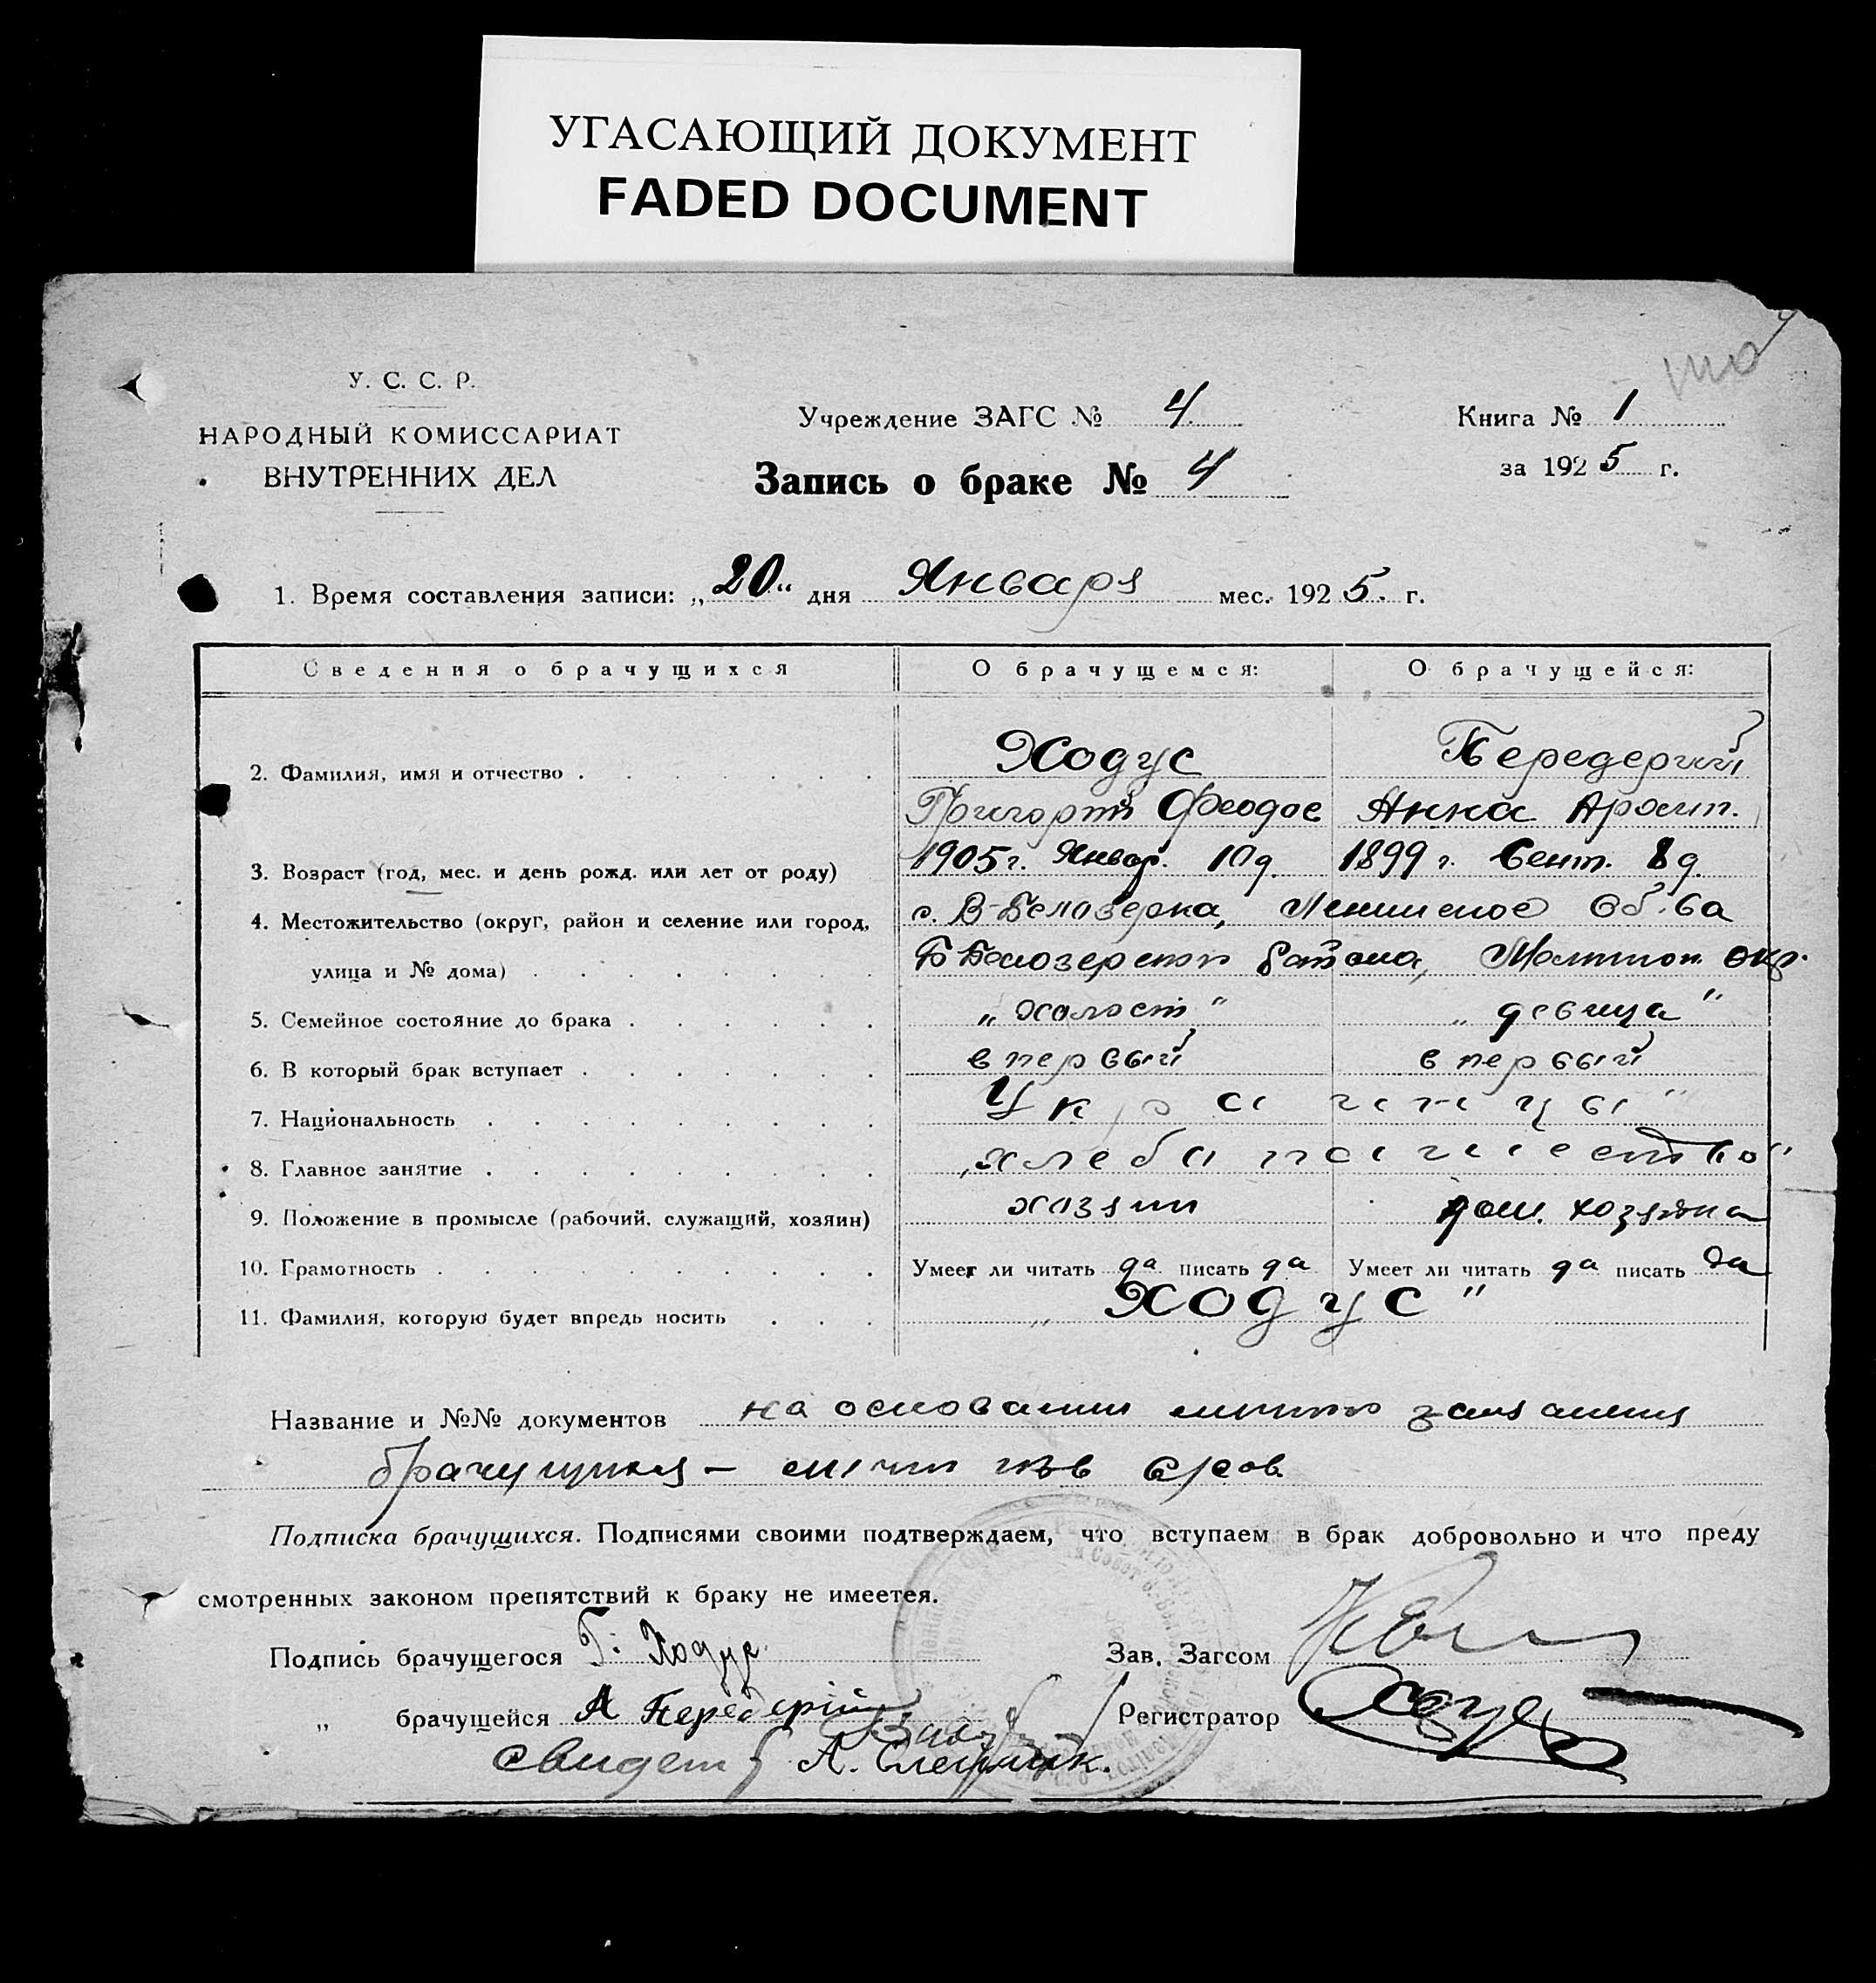 УГАСАЮЩИЙ ДОКУМЕНТ
FADED DOCUMENT
У. С. С. Р.
НАРОДНЫЙ КОМИССАРИАТ
ВНУТРЕННИХ ДЕЛ
Учреждение ЗАГС № 4
Запись о браке № 4
Книга № 1
за 1925 г.
1. Время составления записи: „20“ дня Января мес. 1925. г.
Сведения о брачущихся О брачущемся: О брачущейся:
2. Фамилия, имя и отчество Ходус Передерий
Григорий Феодос Анна Архип.
3. Возраст (год, мес. и день рожд. или лет от роду) 1905 г. Январ. 10 д. 1899 г. Сент. 8 д.
4. Местожительство (округ, район и селение или город, с. В-Белозерка, Ленинское Об-ва
улица и № дома) Б Белозерского района, Мелитоп. окр.
5. Семейное состояние до брака „холост“ „девица“
6. В который брак вступает в первый в первый
7. Национальность Украинцы“
8. Главное занятие „хлебопашество“
9. Положение в промысле (рабочий, служащий, хозяин) хозяин дом. хозяйка
10. Грамотность Умеет ли читать да писать да Умеет ли читать да писать да
11. Фамилия, которую будет впредь носить „Ходус“
Название и №№ документов на основании личного заявления
брачущихся —
Подписка брачущихся. Подписями своими подтверждаем, что вступаем в брак добровольно и что преду
смотренных законом препятствий к браку не имеется.
Подпись брачущегося Г. Ходус Зав. Загсом
„ брачущейся А Передерій Регистратор
свидет { А.